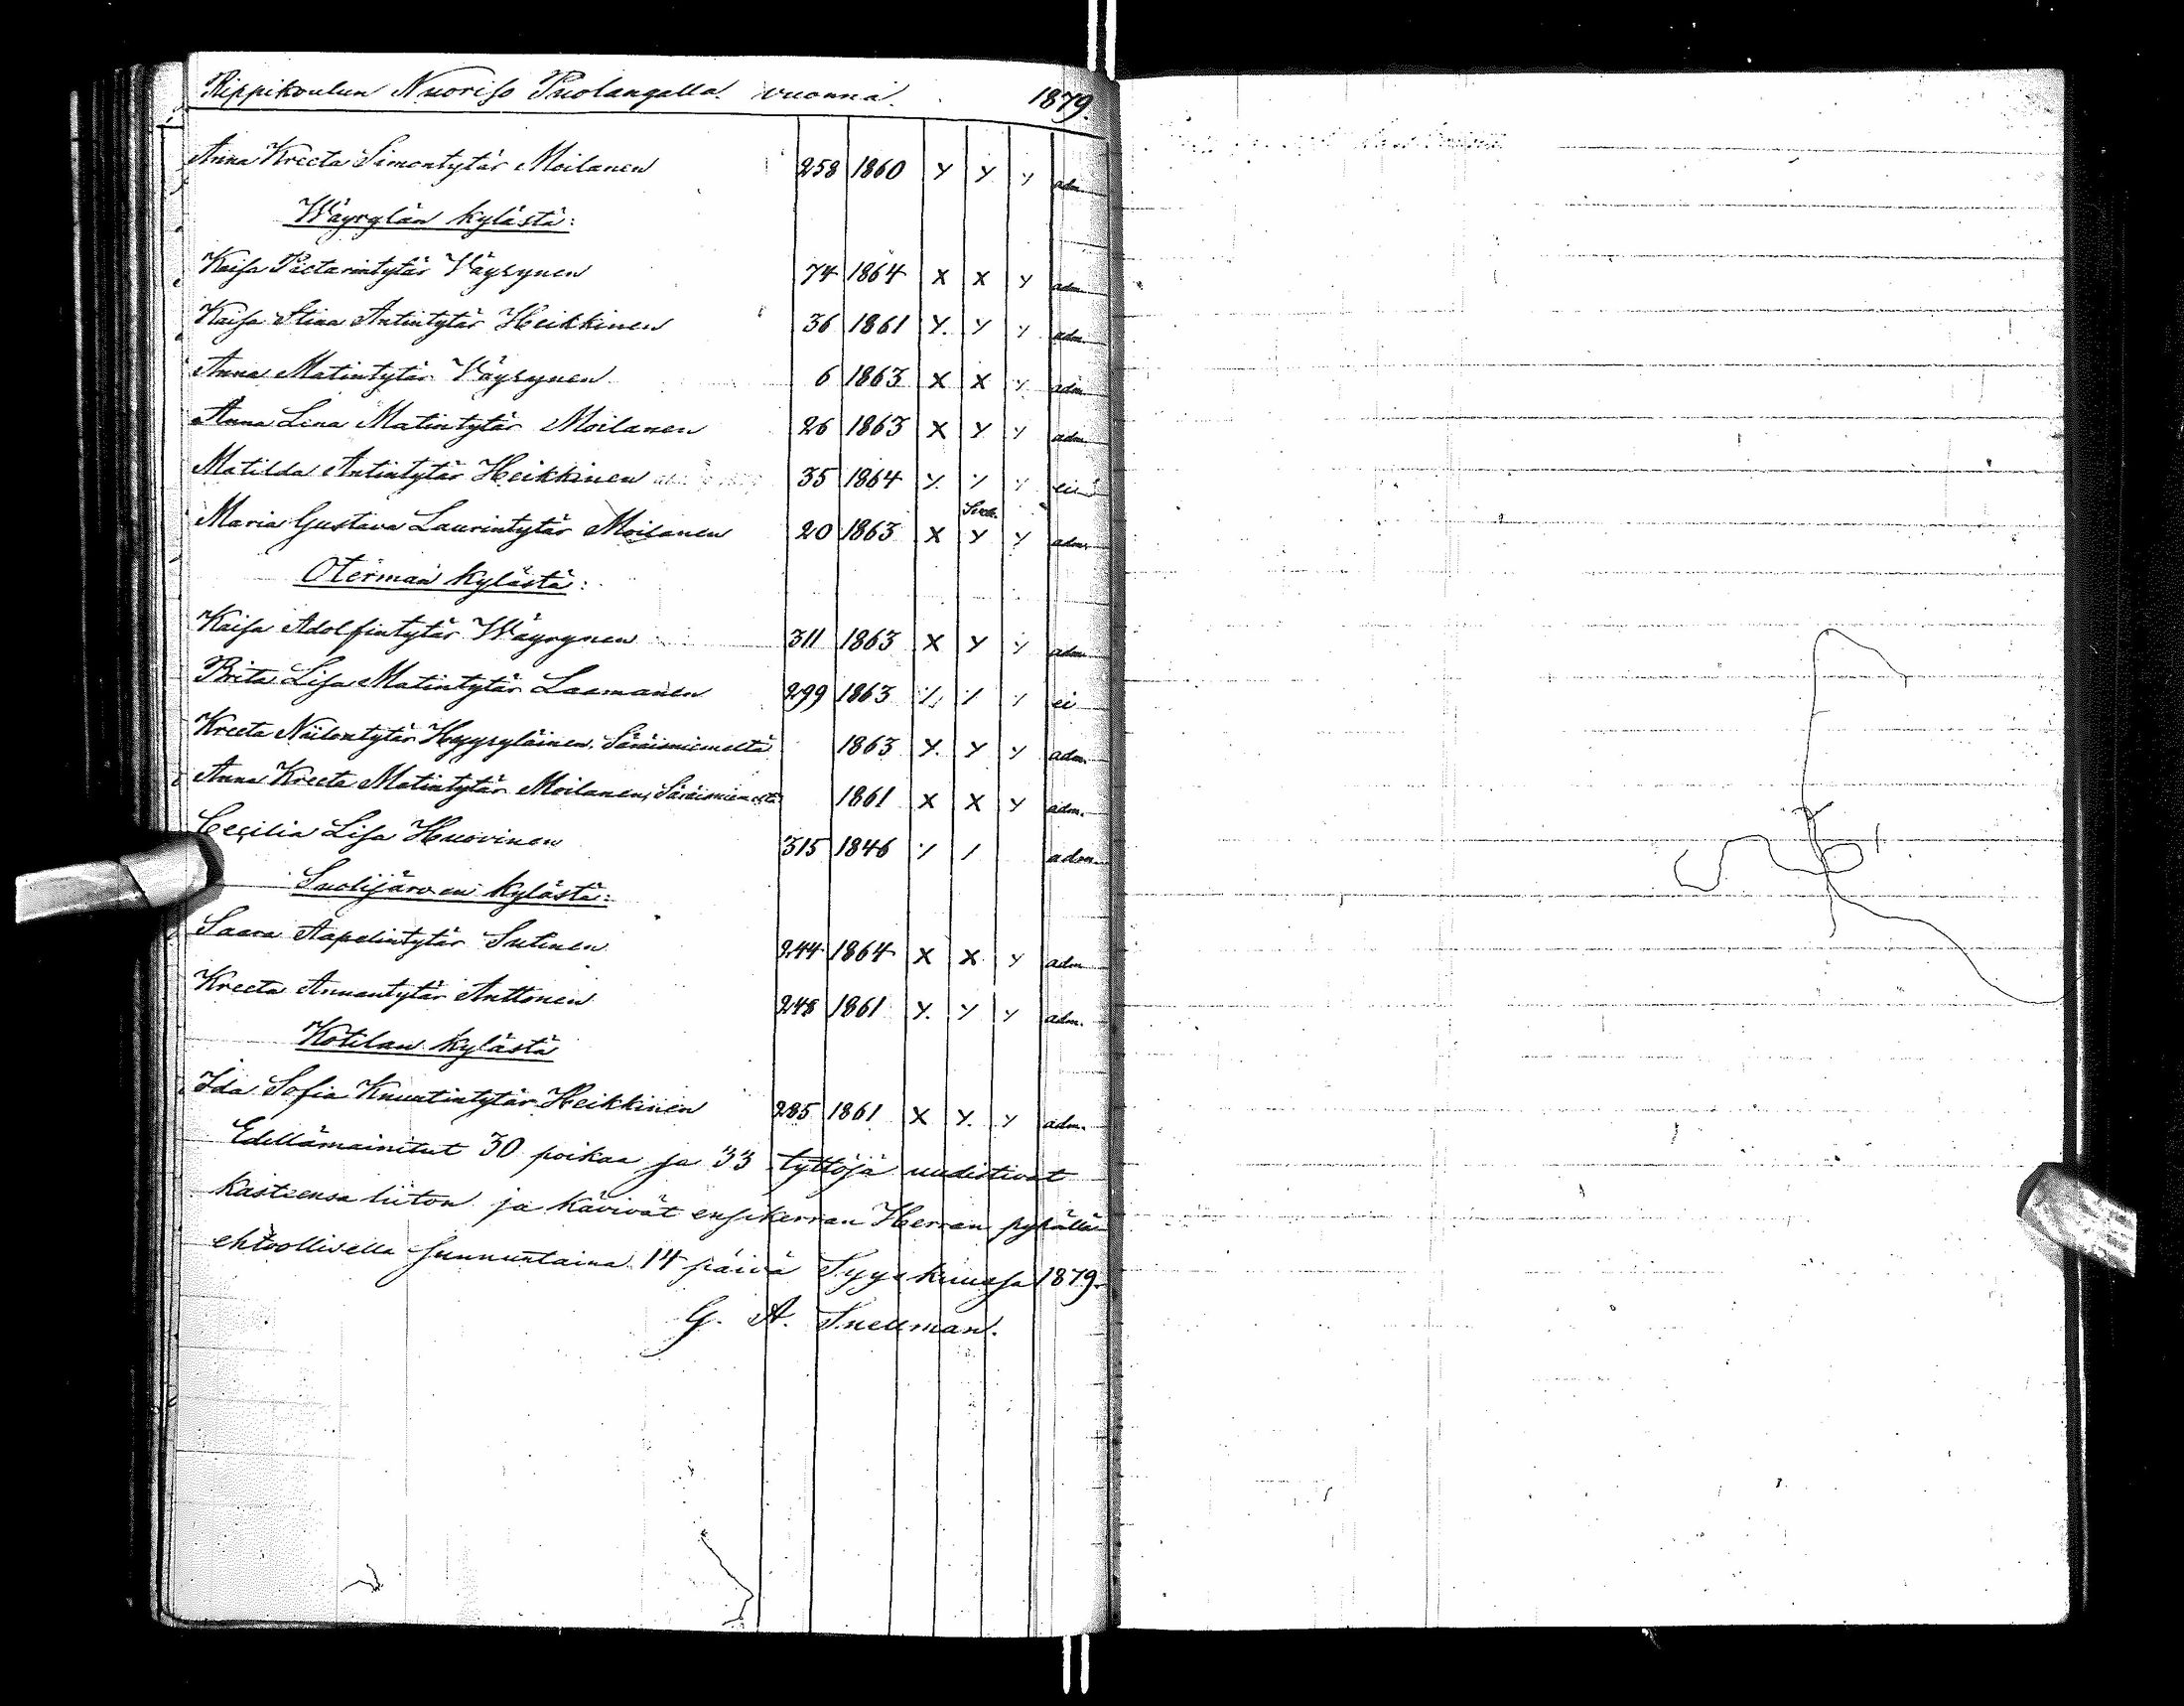 Rippikoulun Nuoriso Puolangalla vuonna 1879.
Anna Kreeta Simontytär Moilanen 258 1860 Y Y Y adm.
Wäyrylän kylästä:
Kaisa Pietarintytär Väyrynen 74 1864 X X Y adm.
Kaisa Stina Antintytär Heikkinen 36 1861 Y. Y Y adm.
Anna Matintytär Väyrynen 6 1863 X X Y adm.
Anna Lena Matintytär Moilanen 26 1863 X Y Y adm.
Matilda Antintytär Heikkinen 35 1864 Y. Y Y ei
Maria Gustava Laurintytär Moilanen 20 1863 X Y Y adm.
Oterman kylästä:
Kaisa Adolfintytär Wäyrynen 311 1863 X Y Y adm.
Brita Lisa Matintytär Laamanen 299 1863 ei
Kreeta Niilontytär Hyyryläinen, Säräisniemeltä 1863 Y. Y Y adm.
Anna Kreeta Matintytär Moilanen, Säräisniemeltä 1861 X X Y adm.
Cecilia Lisa Huovinen 315 1846 adm.
Suolijärven kylästä:
Saara Aapelintytär Sutinen 244 1864 X X Y adm
Kreeta Annantytär Anttonen 248 1861 Y. Y Y adm.
Kotilan kylästä
Ida Sofia Knuutintytär Heikkinen 285 1861 X Y. Y adm.
Edellämainitut 30 poikaa ja 33 tyttöjä uudistivat
kasteensa liiton ja kävivät ensikerran Herran pyhällä
ehtoollisella sunnuntaina 14 päivä Syyskuussa 1879.
G. A. Snellman.